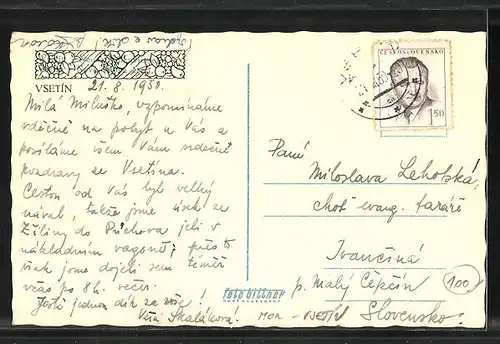 VSETÍN 21. 8. 1950.
Milá Miluško, vzpomínáme
vděčně na pobyt u Vás a
posíláme všem Vám srdečné
pozdravy ze Vsetína.
Cestou od Vás byl velký
nával, takže jsme úsek ze
Žiliny do Púchova jeli v
nákladním vagoně; přes to
však jsme dojeli sem téměř
včas po 8 h. večer.
Ještě jednou dík za vše!
Věra Skaláková!
foto grittner
ČESKOSLOVENSKO
1.50
Paní
Miloslava Lehotská,
choť evang. faráře
Ivančiná
p. Malý Čepčín
Slovensko!
100